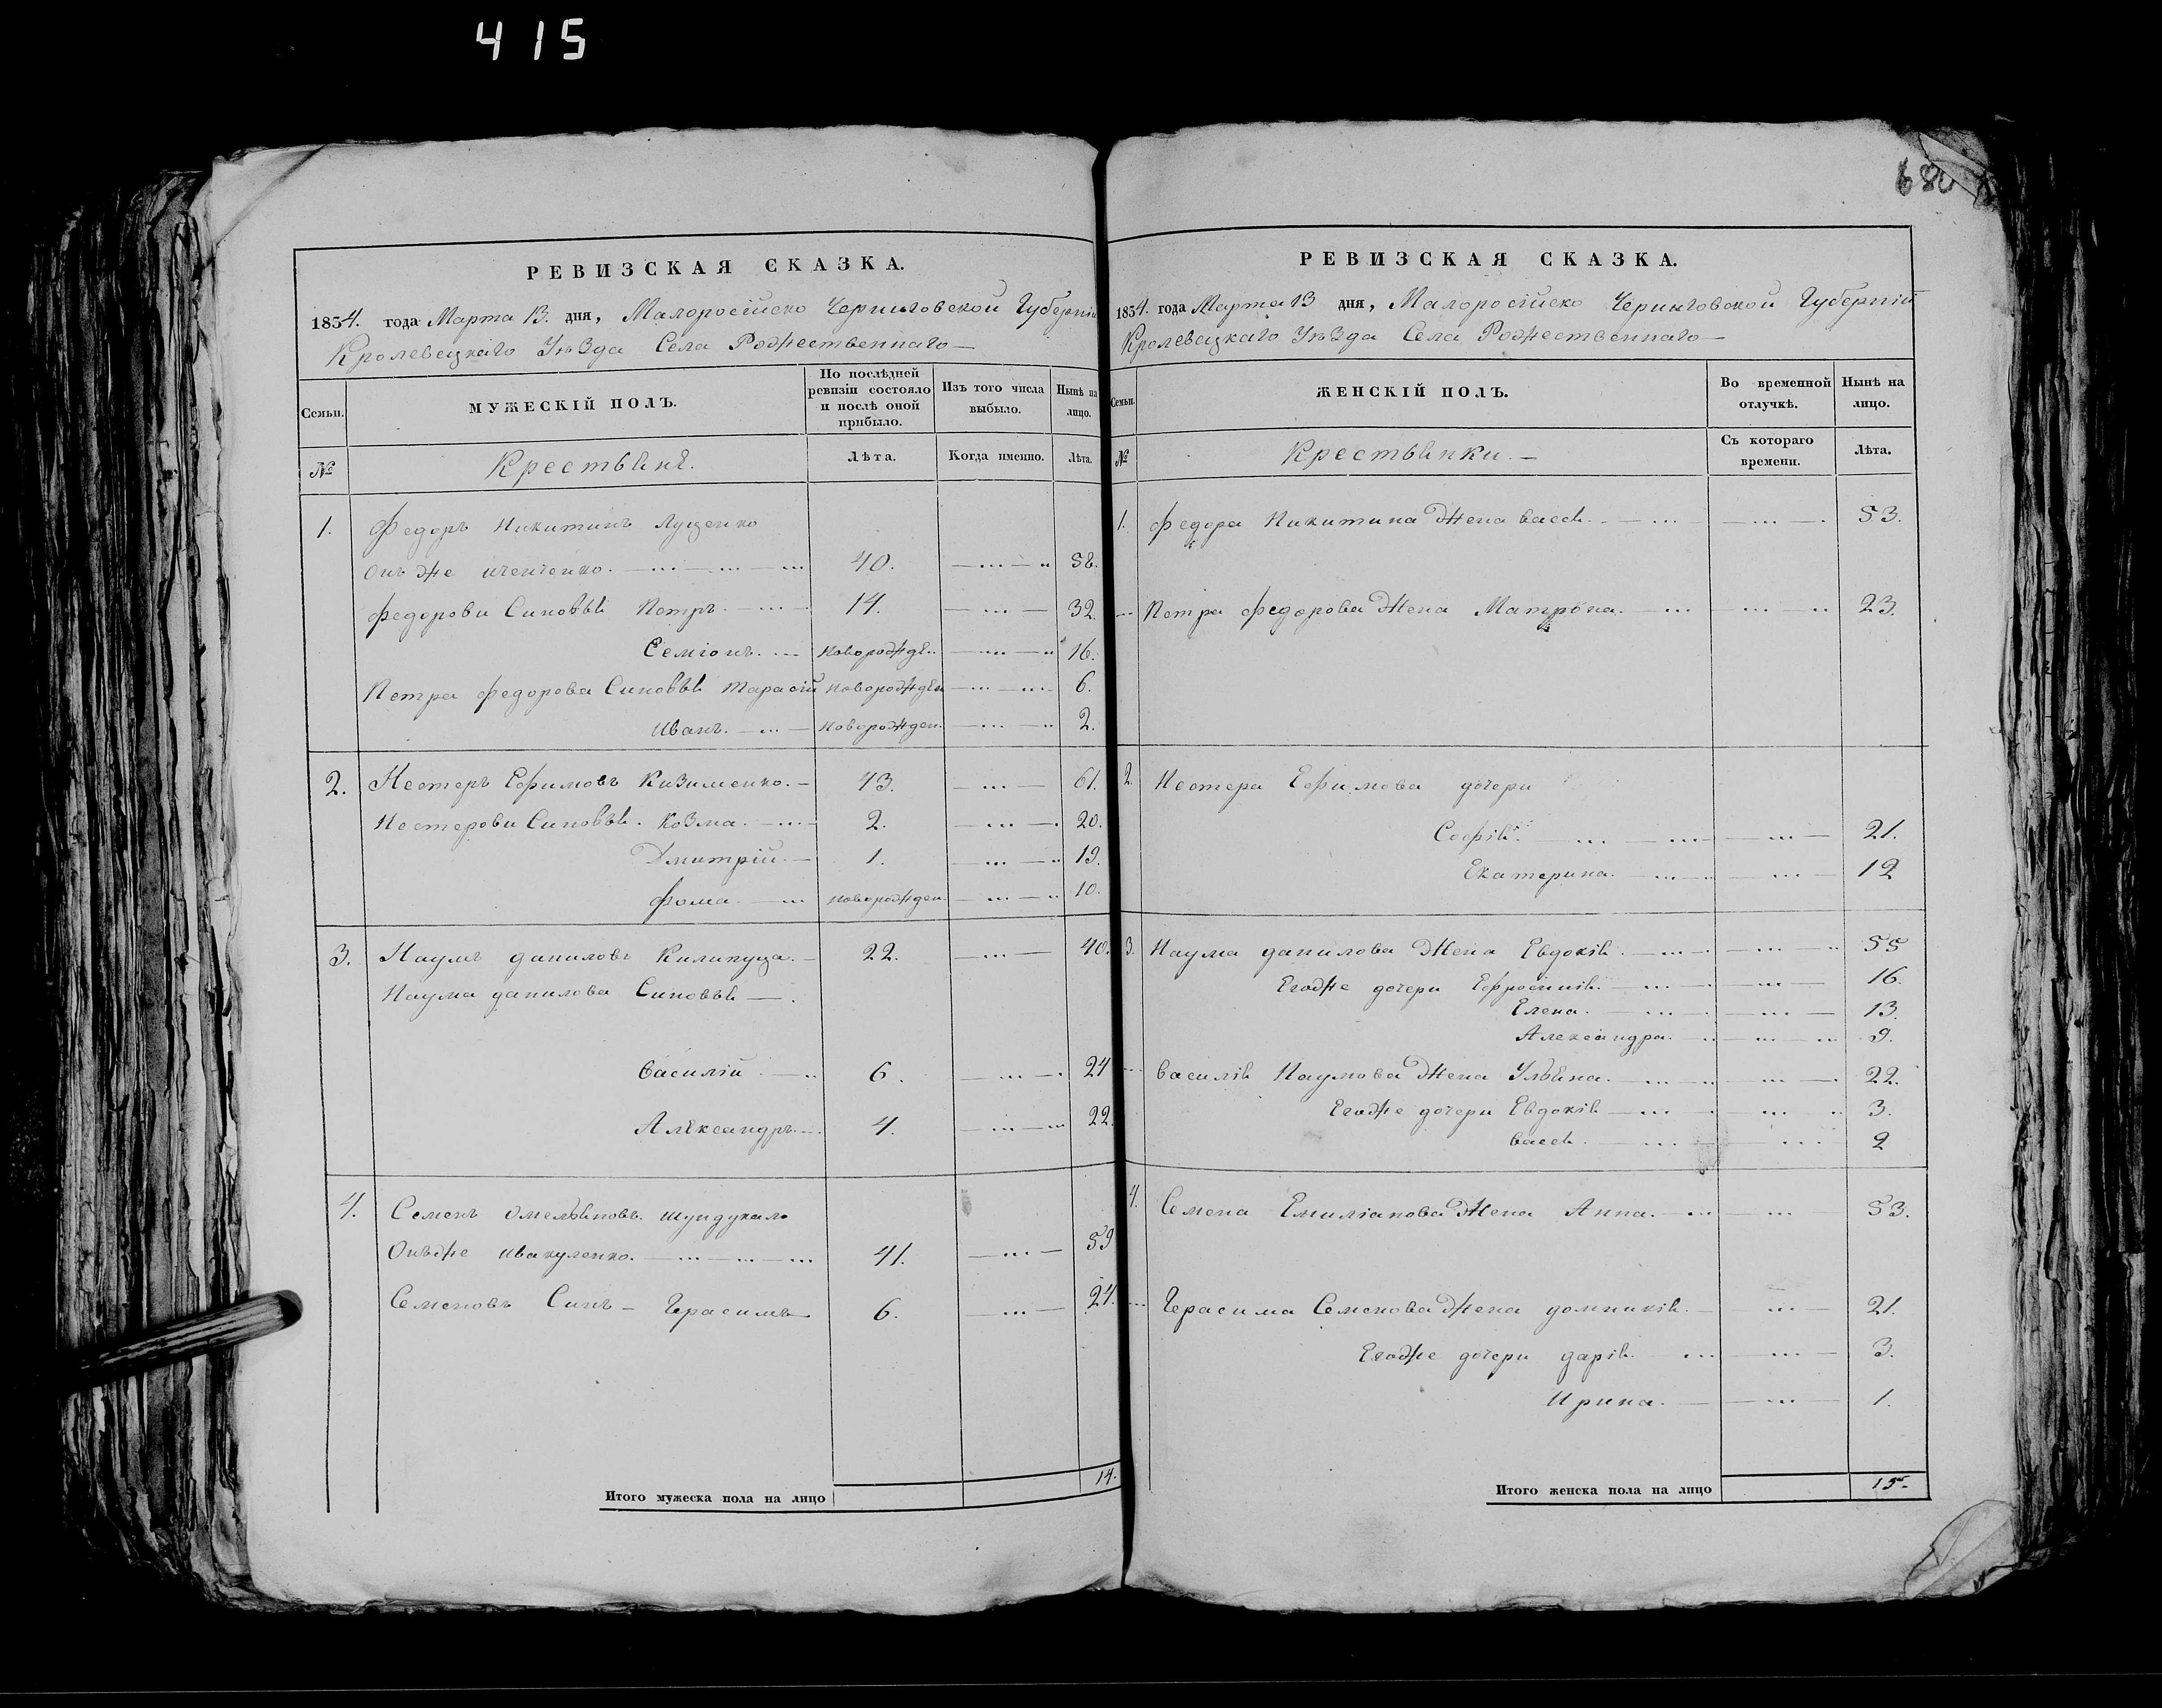 415
680
РЕВИЗСКАЯ СКАЗКА.
1854. года Марта 13. дня, Малоросійско Черниговской Губерніи
Кролевецкаго Уѣзда Села Рождественнаго
Семьи.
МУЖЕСКІЙ ПОЛЪ.
По послѣдней ревизіи состояло и послѣ оной прибыло.
Изъ того числа выбыло.
Нынѣ на лицо.
№
Крестьяне.
Лѣта.
Когда именно.
Лѣта.
1. Федоръ Никитинъ Луценко
Онъ же 40. 58.
Федорови Синовья Петръ 14. 32.
Семіонъ. новорожден. 16.
Петра Федорова Синовья Тарасій новорожден 6.
Иванъ. новорожден. 2.
2. Нестеръ Ефимовъ Кизименко. 43. 61.
Нестерови Синовья. Козма. 2. 20.
Дмитрій. 1. 19.
Фома. новорожден. 10.
3. Наумъ Даниловъ 22. 40.
Наума Данилова Синовья
Василій 6. 24
Александръ. 4. 22.
4. Семенъ Омельяновъ. Шундукало
Онъ же Ивакуленко. 41. 59
Семеновъ Синъ Герасимъ 6. 24.
Итого мужеска пола на лицо 14.
РЕВИЗСКАЯ СКАЗКА.
1854. года Марта 13 дня, Малоросійско Черниговской Губерніи
Кролевецкаго Уѣзда Села Рождественнаго
Семьи.
ЖЕНСКІЙ ПОЛЪ.
Во временной отлучкѣ.
Нынѣ на лицо.
№
Крестьянки.
Съ котораго времени.
Лѣта.
1. Федора Никитина жена Васся. 53.
Петра Федорова жена Матрона. 23.
2. Нестера Ефимова дочери
Софія. 21.
Екатерина. 12
3. Наума Данилова жена Евдокія. 55
Егоже дочери Ефросинія. 16.
Елена. 13.
Александра. 9.
Василія Наумова жена Ульяна. 22.
Егоже дочери Евдокія 3.
Васся. 2
4. Семена Емиліанова жена Анна. 53.
Герасима Семенова жена Домникія. 21.
Егоже дочери Дарія. 3.
Ирина. 1.
Итого женска пола на лицо 15.